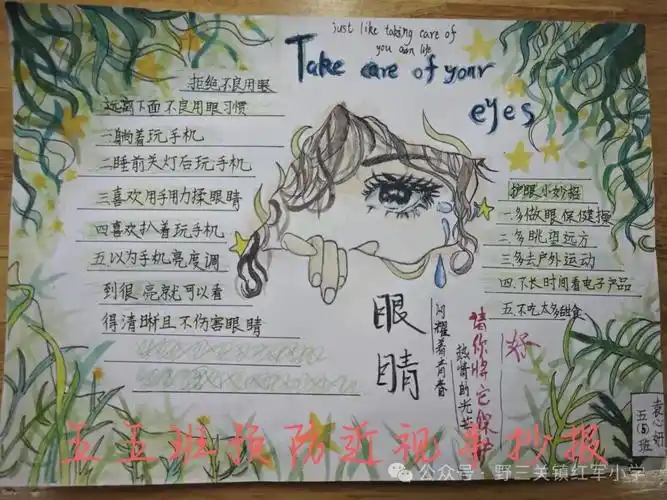 just like taking care of
you own life
Take care of your
eyes
拒绝不良用眼
远离下面不良用眼习惯
一.躺着玩手机
二.睡前关灯后玩手机
三.喜欢用手用力揉眼睛
四.喜欢扒着玩手机
五.以为手机亮度调
到很亮就可以看
得清晰且不伤害眼睛
护眼小妙招
一.多做眼保健操
二.多眺望远方
三.多去户外运动
四.不长时间看电子产品
五.不吃太多甜食
眼睛
闪耀着青春
热情的光芒
请你将它保护
好
袁心妍
五(5)班
五五班预防近视手抄报
公众号·野三关镇红军小学